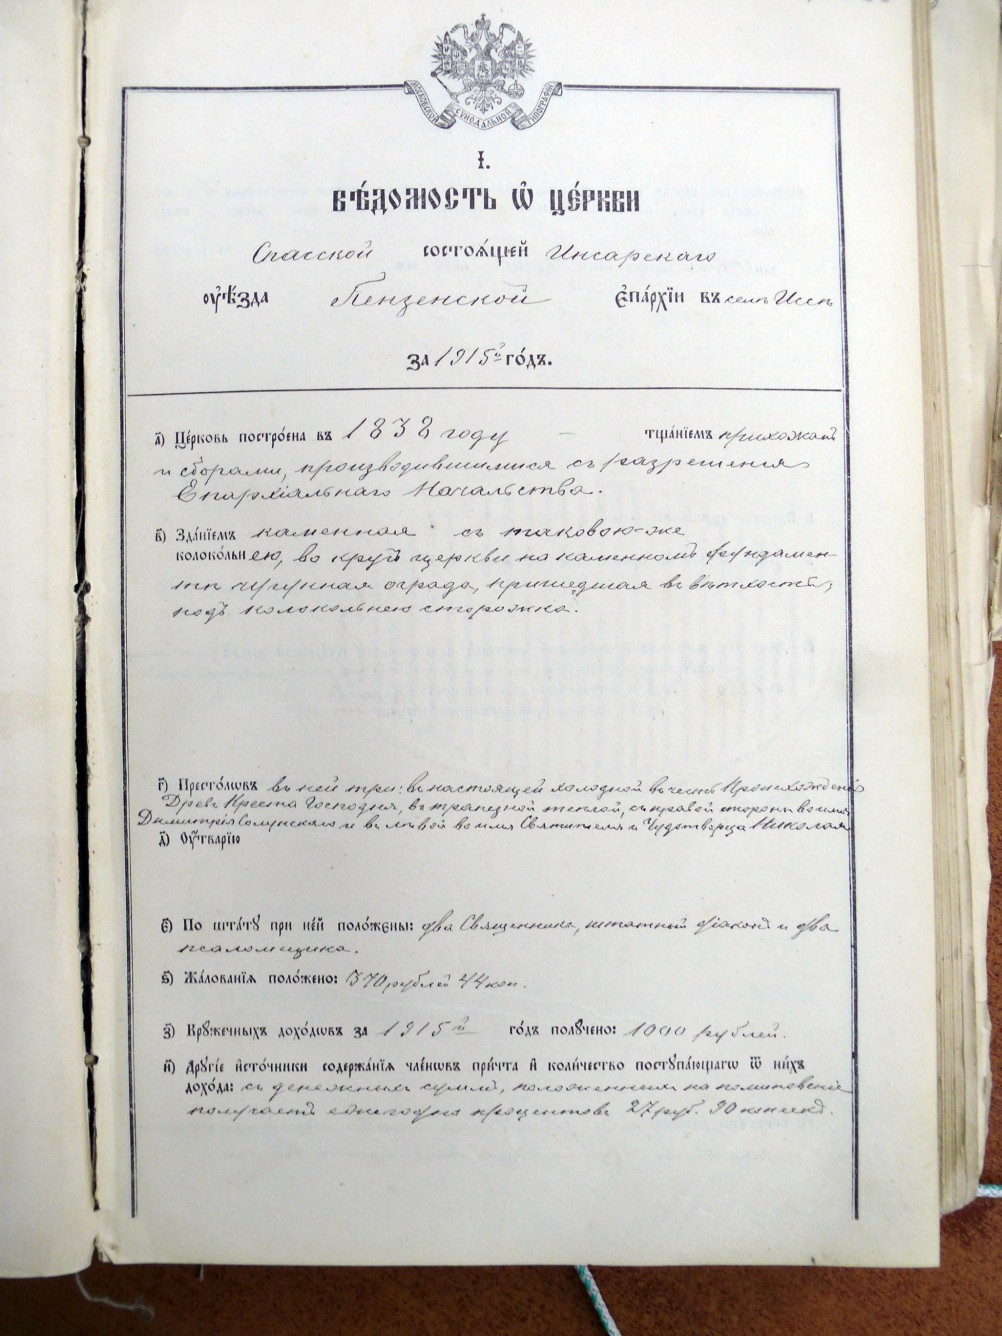 МОСКОВСКОЙ СѴНОДАЛЬНОЙ ТИПОГРАФІИ
І.
ВѢ́ДОМОСТЬ Ѡ҆ ЦЕ́РКВИ
Спасской состоѧ́щей Инсарскаго
ᲂу҆ѣ́зда Пензенской є҆па́рхїи въ селѣ Иссѣ
за 1915й го́дъ.
а҃) Це́рковь постро́ена въ 1838 году — тща́нїемъ прихожанъ
и сборами, производившимися съ разрешенія
Епархіальнаго Начальства.
в҃) Зда́нїемъ каменная съ таковою-же
колоко́льнею, во кругъ церкви на каменномъ фундамен-
тѣ чугунная ограда, пришедшая въ вѣтхость,
подъ колокольнею сторожка.
г҃) Престо́лѡвъ въ ней три: въ настоящей холодной въ честь Происхожденія
Древъ Креста Господня, въ трапезной теплой, съ правой стороны во имя
Димитрія Солунскаго и въ лѣвой во имя Святителя и Чудотворца Николая
д҃) Оу҆́тварїю
є҃) По шта́тꙋ при не́й поло́жєны: два Священника, штатный діаконъ и два
псаломщика.
ѕ҃) Жа́лованїѧ поло́жено: 370 рублей 44 коп.
з҃) Крꙋ́жечныхъ дохо́дѡвъ за 1915й го́дъ полꙋ́чено: 1000 рублей.
и҃) Дрꙋгі́е и҆сто́чники содержа́нїѧ чле́нѡвъ при́чта и҆ коли́чество постꙋпа́ющагѡ ѿ ни́хъ
дохо́да: съ денежныхъ суммъ, положенныхъ на поминовеніе
получаетъ ежегодно процентовъ 27 руб. 90 копеекъ.